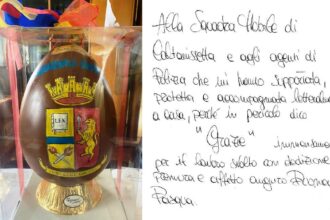 LEX
Alla Squadra Mobile di
Caltanissetta e agli agenti di
Polizia che mi hanno supportata,
protetta e accompagnata letteralmente
a casa, perché in pericolo dico
"Grazie" immensamente
per il lavoro svolto con dedizione
Premura e affetto auguro Buona
Pasqua.